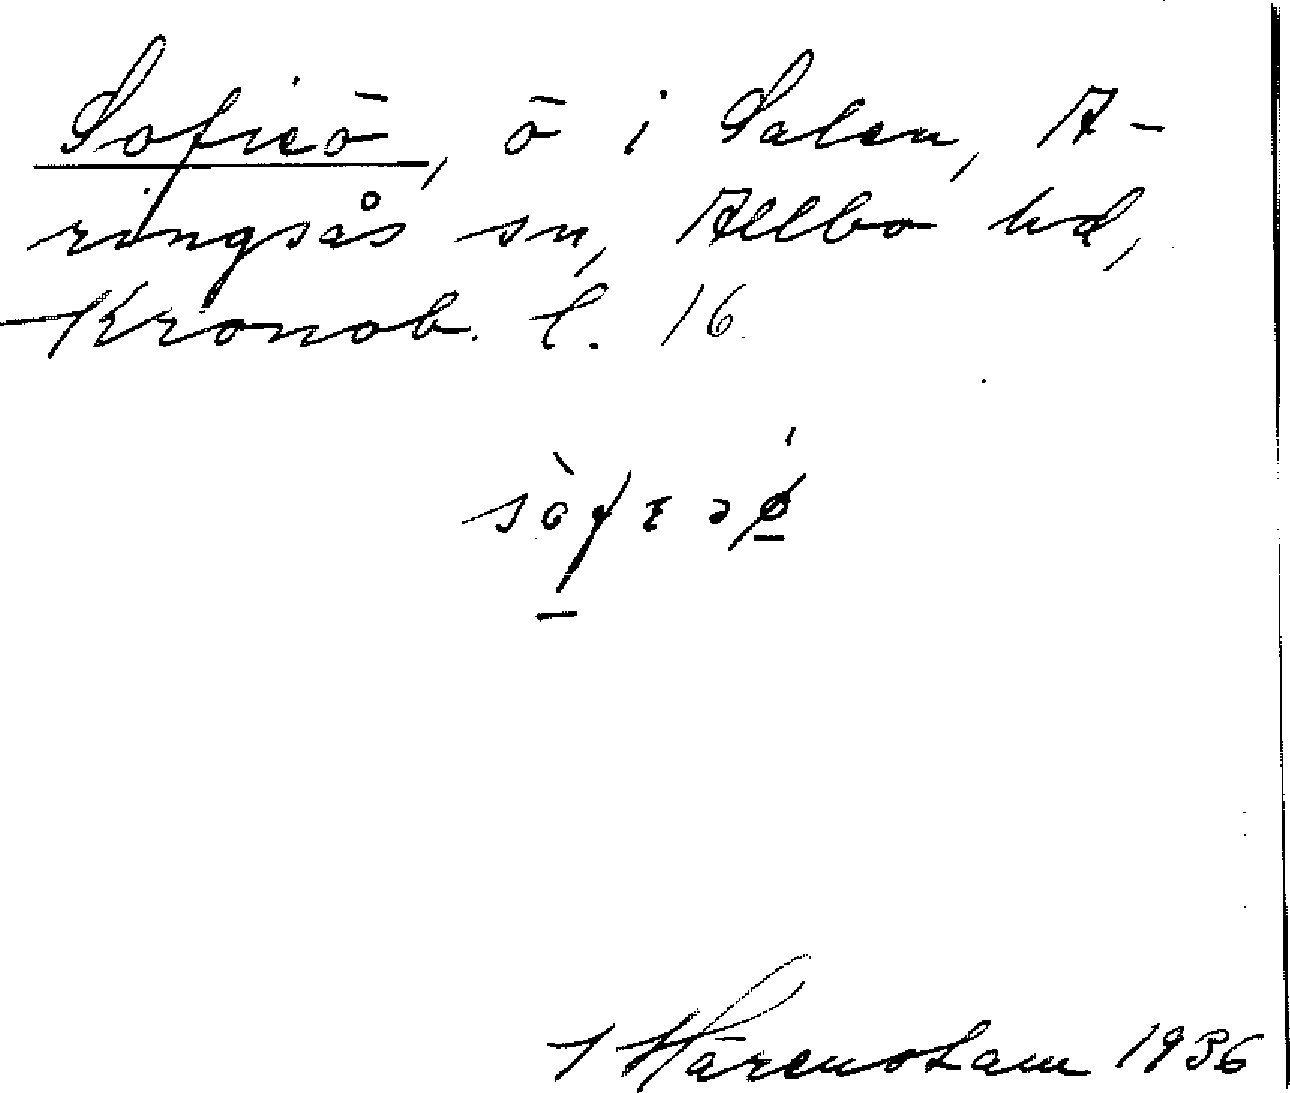 Sofieö, ö i Salen, A-
ringsås sn, Allbo hd,
Kronob. l. 16
1936